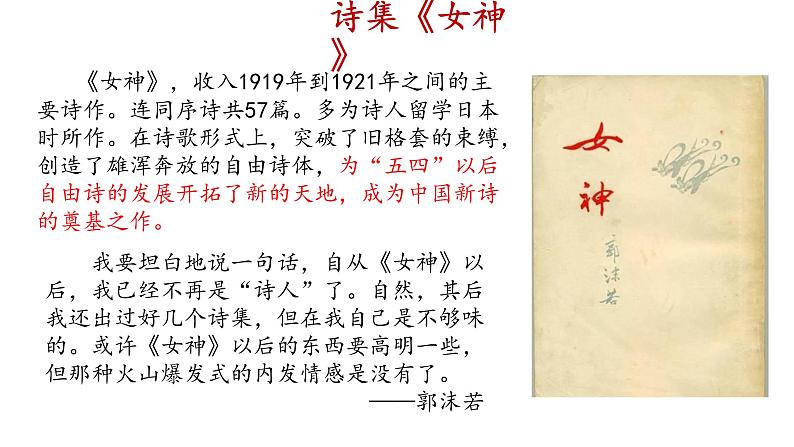 诗集《女神
》
《女神》，收入1919年到1921年之间的主
要诗作。连同序诗共57篇。多为诗人留学日本
时所作。在诗歌形式上，突破了旧格套的束缚，
创造了雄浑奔放的自由诗体，为“五四”以后
自由诗的发展开拓了新的天地，成为中国新诗
的奠基之作。
我要坦白地说一句话，自从《女神》以
后，我已经不再是“诗人”了。自然，其后
我还出过好几个诗集，但在我自己是不够味
的。或许《女神》以后的东西要高明一些，
但那种火山爆发式的内发情感是没有了。
——郭沫若
女神
郭沫若